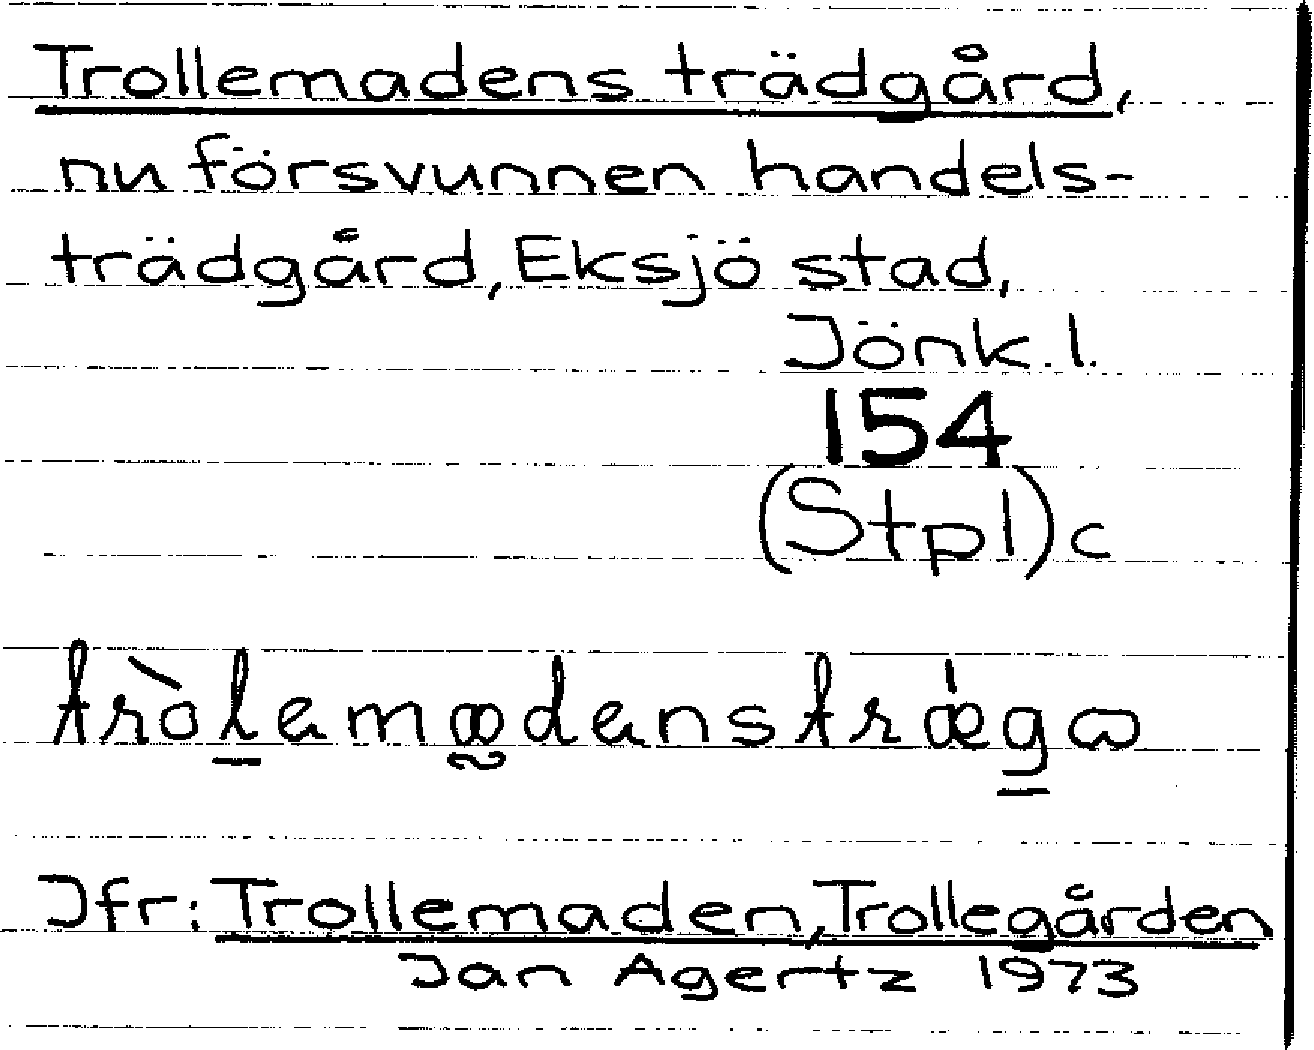 Trollemadens trädgård,
nu försvunnen handels-
trädgård, Eksjö stad,
Jönk. l.
154
(Stpl) c
Jfr: Trollemaden, Trollegården
Jan Agertz 1973